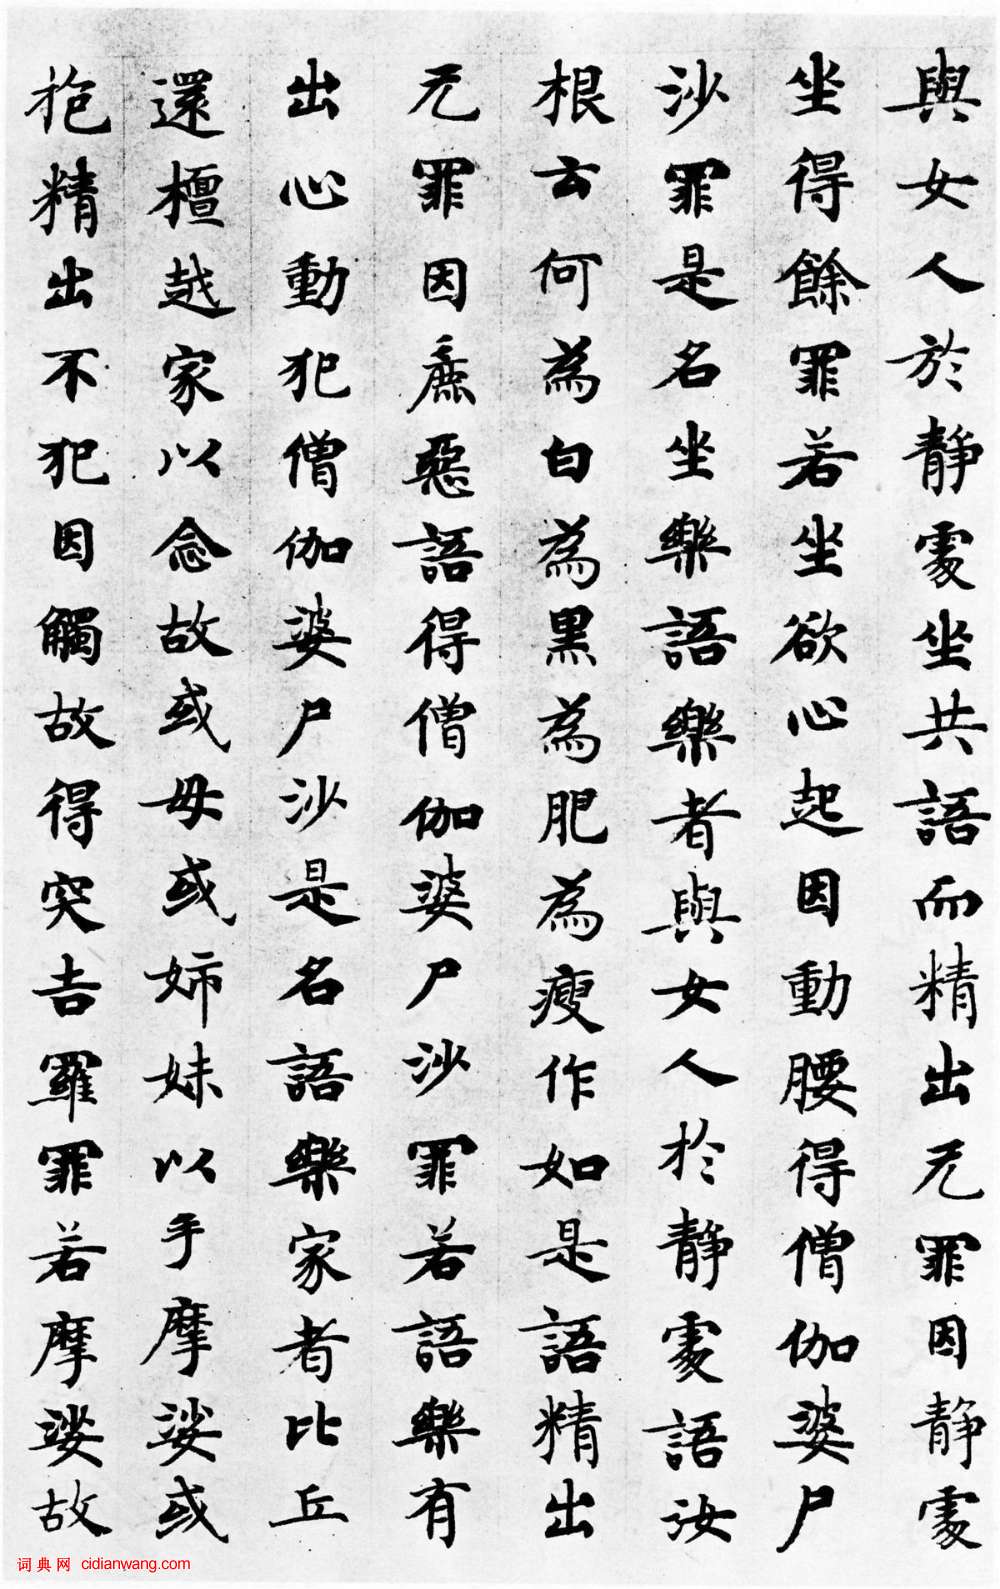 與女人於静處坐共語而精出无罪因静處
坐得餘罪若坐欲心起因動腰得僧伽婆尸
沙罪是名坐樂語樂者與女人於静處語汝
根云何為白為黑為肥為瘦作如是語精出
无罪因麁惡語得僧伽婆尸沙罪若語樂有
出心動犯僧伽婆尸沙是名語樂家者比丘
還檀越家以念故或母或姉妹以手摩娑或
抱精出不犯因觸故得突吉羅罪若摩娑故
词典网 cidianwang.com